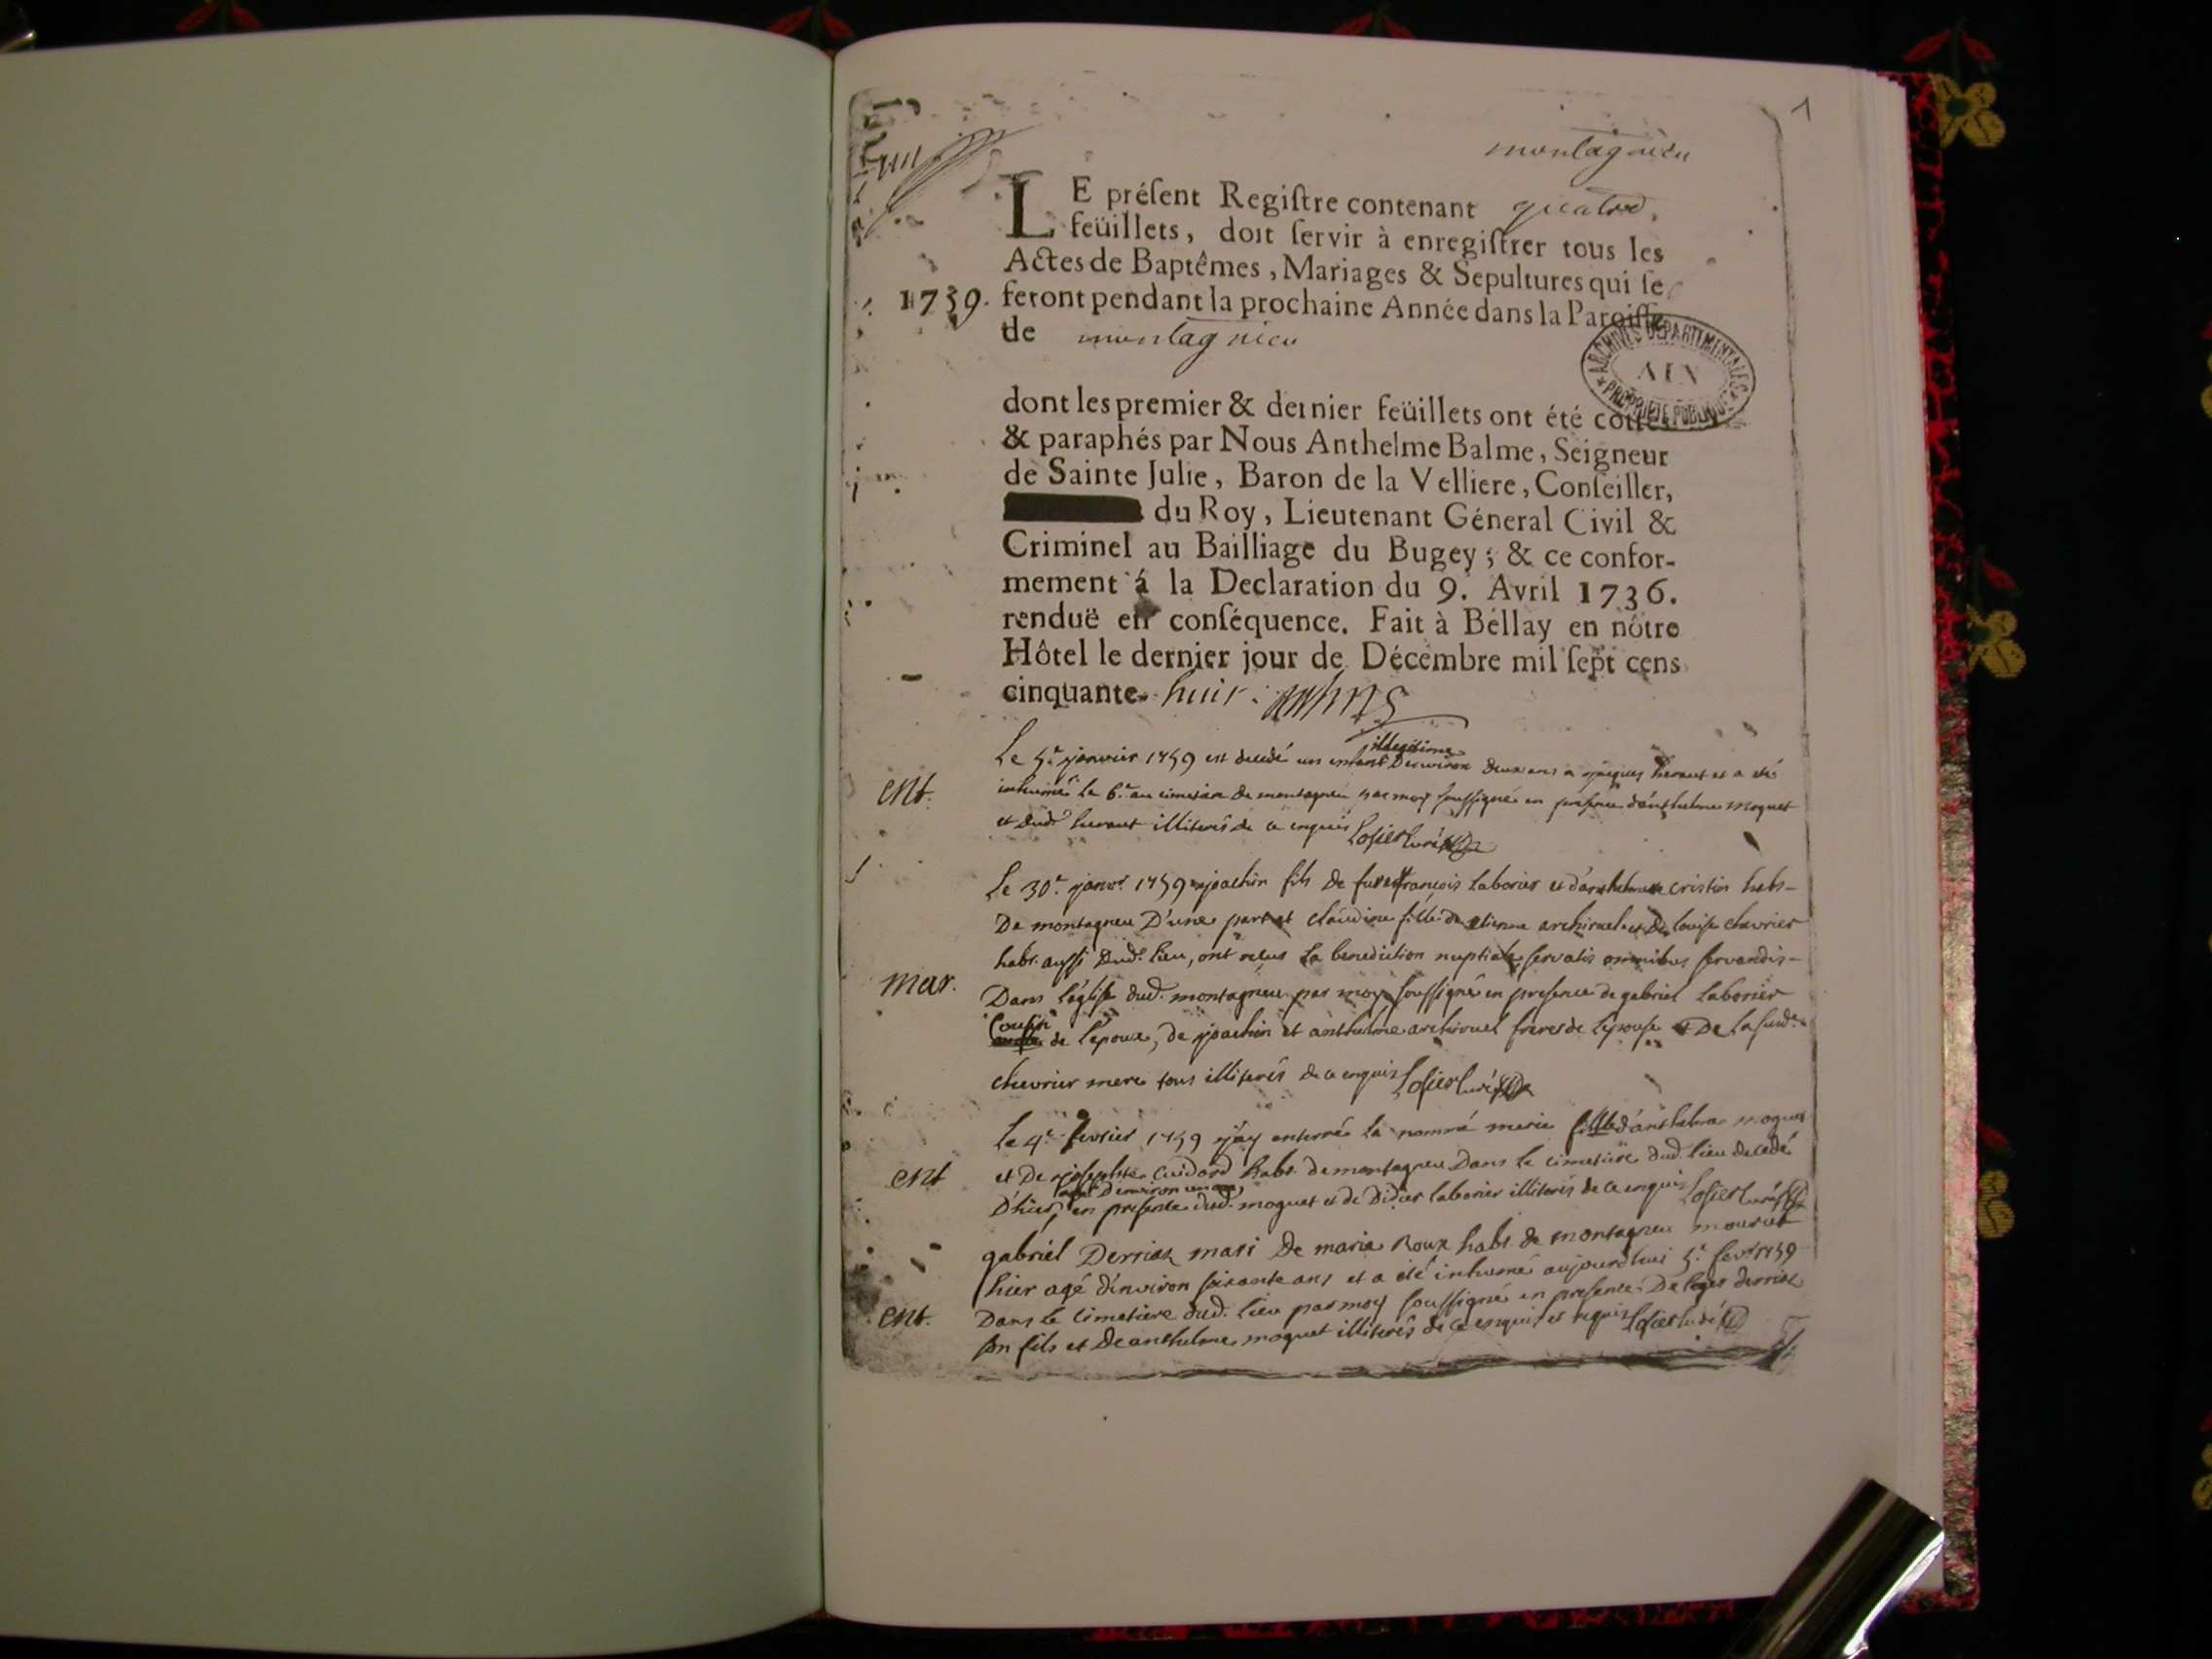 1
montagnieu
LE préſent Regiſtre contenant quatre
feüillets, doit ſervir à enregiſtrer tous les
Actes de Baptêmes, Mariages & Sepultures qui ſe
1759. feront pendant la prochaine Année dans la Paroiſſe
de montagnieu
ARCHIVES DEPARTEMENTALES
AIN
PROPRIETE PUBLIQUE
dont les premier & dernier feüillets ont été cottés
& paraphés par Nous Anthelme Balme, Seigneur
de Sainte Julie, Baron de la Velliere, Conſeiller,
du Roy, Lieutenant Géneral Civil &
Criminel au Bailliage du Bugey; & ce confor-
mement á la Declaration du 9. Avril 1736.
renduë en conſéquence. Fait à Béllay en nôtre
Hôtel le dernier jour de Décembre mil ſept cens
cinquante huit.
illegitime
Le 5e janvier 1759 est decedé un enfant D'environ deux ans a et a été
ent. inhumé le 6e au cimetiere de montagneu par moy soussigné en presence d'anthelme moquet
et dud. illiterés de ce enquis curé
Le 30e janvr. 1759 joachin fils de feu françois laborier et d'anthelme cristin habs
De montagneu D'une part et claudine fille de etienne archiruel et De louise chevrier
habt. aussi Dud. lieu, ont reçus la benediction nuptiale servatis omnibus servandis
mar. Dans l'église dud. montagneu par moy soussigné en presence de gabriel laborier
Cousin de l'epoux, de joachin et anthelme archiruel freres de l'epouse et De la susd.
chevrier mere tous illiterés de ce enquis curé
Le 4e fevrier 1759 j'ay enterré la nommé marie fille d'anthelme moquet
ent et De josephte Cuidard habt. de montagneu Dans le cimetiere dud. lieu decedé
agée D'environ un an
D'hier, en presence dud. moquet et de Didier laborier illiterés de ce enquis curé
gabriel Derriaz mari De marie Roux habt. de montagneu mourut
hier agé d'environ soixante ans et a été inhumé aujourdhui 5e fevr 1759
ent. Dans le Cimetiere dud. lieu par moy soussigné en presence De leger derriaz
son fils et De anthelme moquet illiterés de ce enquis et requis curé